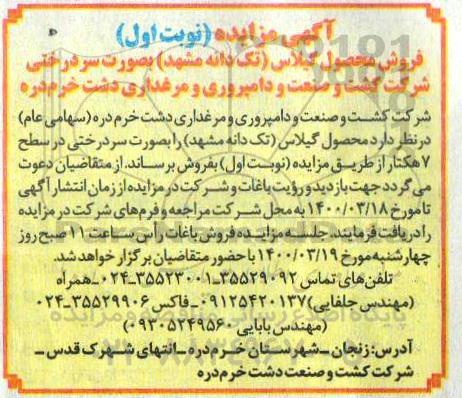 آگهی مزایده (نوبت اول)
فروش محصول گیلاس (تک دانه مشهد) بصورت سردرختی
شرکت کشت و صنعت و دامپروری و مرغداری دشت خرم‌دره
شرکت کشت و صنعت و دامپروری و مرغداری دشت خرم دره (سهامی عام)
در نظر دارد محصول گیلاس (تک دانه مشهد) را بصورت سردرختی در سطح
۷ هکتار از طریق مزایده (نوبت اول) بفروش برساند. از متقاضیان دعوت
می گردد جهت بازدید و رؤیت باغات و شرکت در مزایده از زمان انتشار آگهی
تا مورخ ۱۴۰۰/۰۳/۱۸ به محل شرکت مراجعه و فرم‌های شرکت در مزایده
را دریافت فرمایند. جلسه مزایده فروش باغات راس ساعت ۱۱ صبح روز
چهارشنبه مورخ ۱۴۰۰/۰۳/۱۹ با حضور متقاضیان برگزار خواهد شد.
تلفن‌های تماس ۳۵۵۲۹۰۹۲-۳۵۵۲۳۰۰۱-۰۲۴-همراه
(مهندس جلفایی) ۰۹۱۲۵۴۲۰۱۳۷-فاکس ۳۵۵۲۹۹۰۶-۰۲۴
(مهندس بابایی ۰۹۳۰۵۲۴۹۵۶۰)
آدرس: زنجان - شهرستان خرم دره - انتهای شهرک قدس -
شرکت کشت و صنعت دشت خرم‌دره